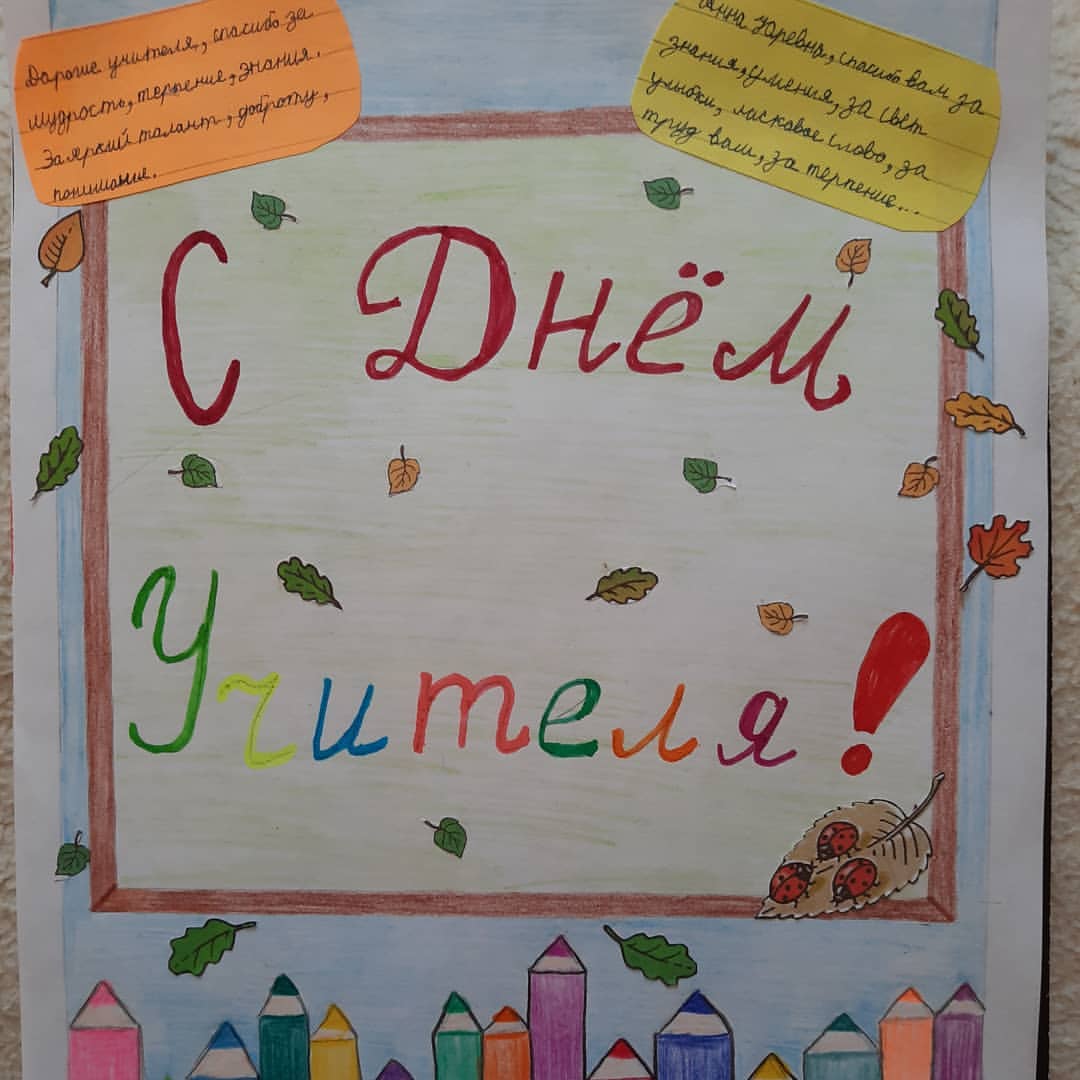 Дорогие учителя, спасибо за
мудрость, терпение, знания.
За яркий талант, доброту,
понимание.
Анна Уаревна, спасибо вам за
знания, умения, за свет
улыбки, ласковое слово, за
труд ваш, за терпение...
С Днём
Учителя!